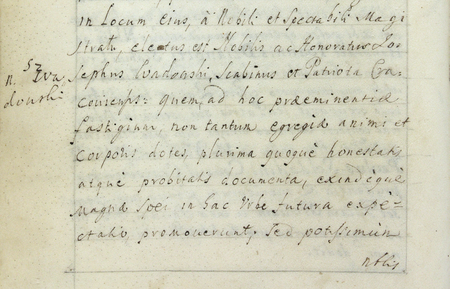 in Locum Eius, à Nobili et Spectabili Magi
stratu, electus est Nobilis ac Honoratus Jo,,
sephus Wadowski, Scabinus et Patriota Cra,,
coviensis: quem, ad hoc præeminentiæ
fastigium, non tantum egregiæ animi et
corporis dotes, plurima quoquè honestatis
atquè probitatis documenta, exindèquè
Magnæ Spei in hac Urbe futura expe,,
ctatio promoverunt, sed potissimùm
nblis
N. 52 Wa,,
dowski